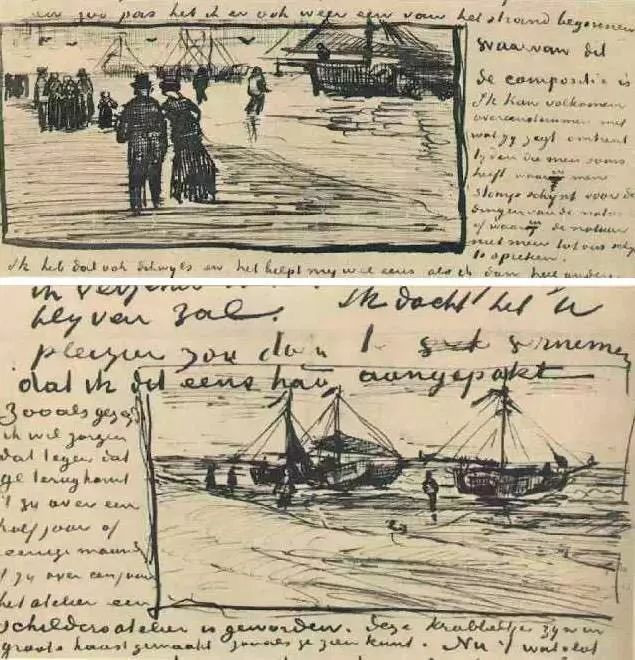 zoo pas heb ik er ook weer een van het strand begonnen
waarvan dit
de compositie is
Ik kan volkomen
overeenstemmen met
wat gy zegt omtrent
tyden die men soms
heeft waarin men
stomp schynt voor de
dingen van de natuur
of waarin de natuur
niet meer tot ons schynt
te spreken.
Ik heb dat ook dikwyls en het helpt my wel eens als ik dan heel andere
blyven zal. Ik dacht het U
plezier zou doen te vernemen
dat ik dit eens had aangepakt
Zooals gezegd
ik wil zorgen
dat tegen dat
ge terugkomt
't zy over een
half jaar of
eenige maand
't zy over een jaar
het atelier een
schildersatelier is geworden. Deze krabbeltjes zyn in
groote haast gemaakt zooals ge zien kunt. Nu wat dat